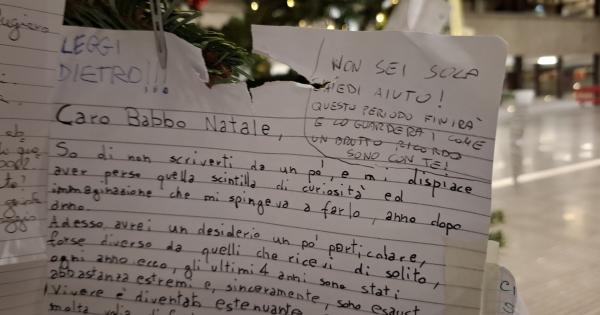 LEGGI
DIETRO!!!
NON SEI SOLA
CHIEDI AIUTO!
QUESTO PERIODO FINIRÀ
E LO GUARDERAI COME
UN BRUTTO RICORDO
SONO CON TE!
Caro Babbo Natale,
So di non scriverti da un po', e mi dispiace
aver perso quella scintilla di curiosità ed
immaginazione che mi spingeva a farlo, anno dopo
anno.
Adesso avrei un desiderio un po' particolare,
forse diverso da quelli che ricevi di solito,
ogni anno: ecco, gli ultimi 4 anni sono stati
abbastanza estremi e, sinceramente, sono
Vivere è diventato estenuante